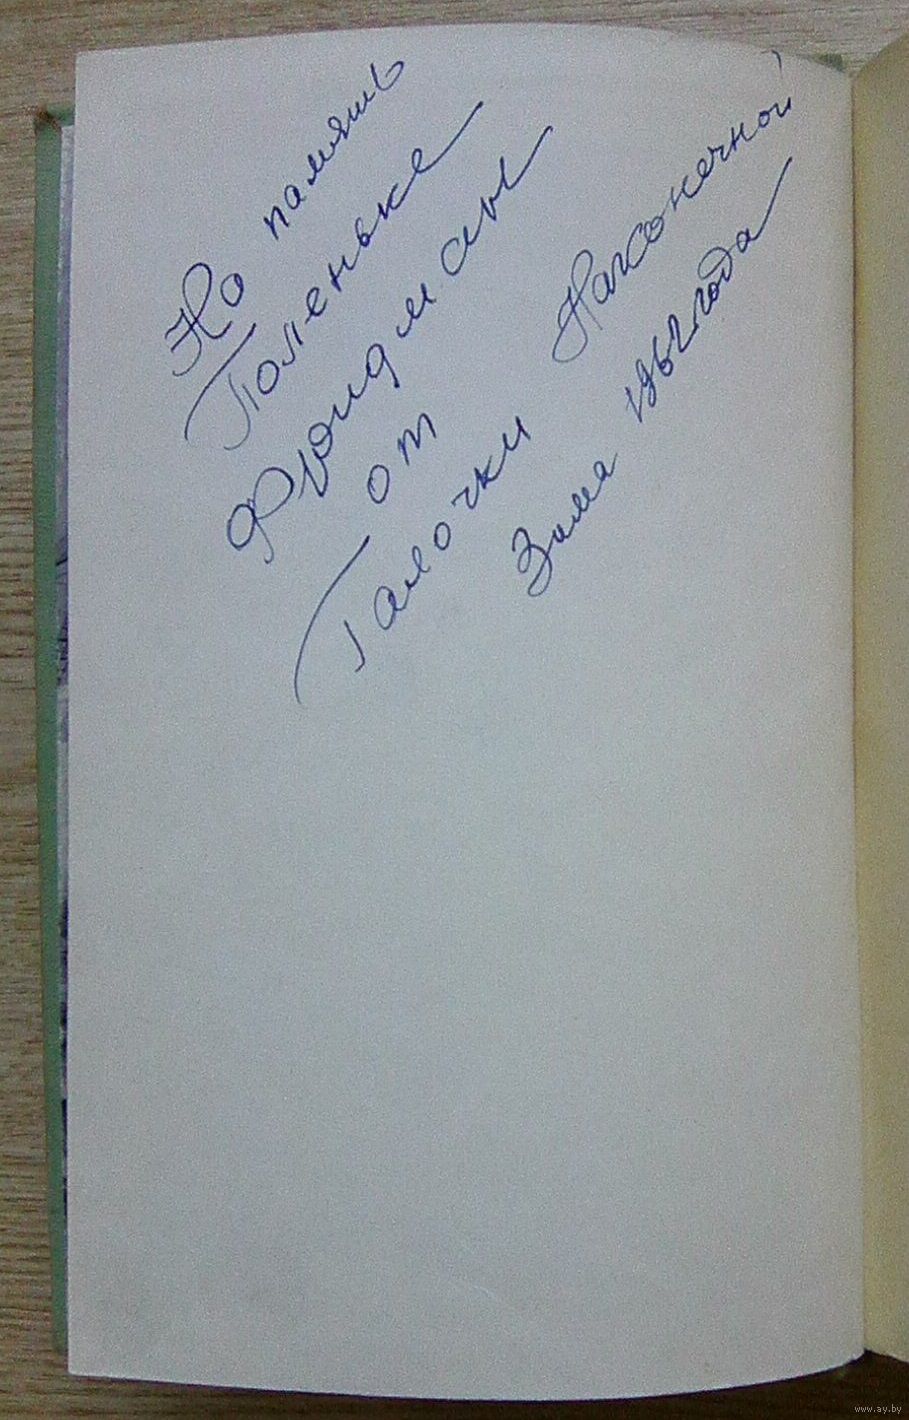 На память
Поленьке
Фридман
от
Галочки Наконечной
Зима 1962 года
www.ay.by